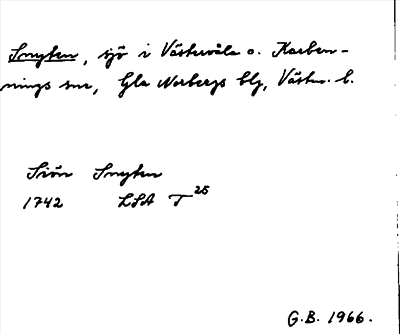 Snyten, sjö i Västervåla o. Karben-
nings snr, Gla Norbergs blg, Västm. l.
Siön Snyten
1742 LSA T 25
G.B. 1966.